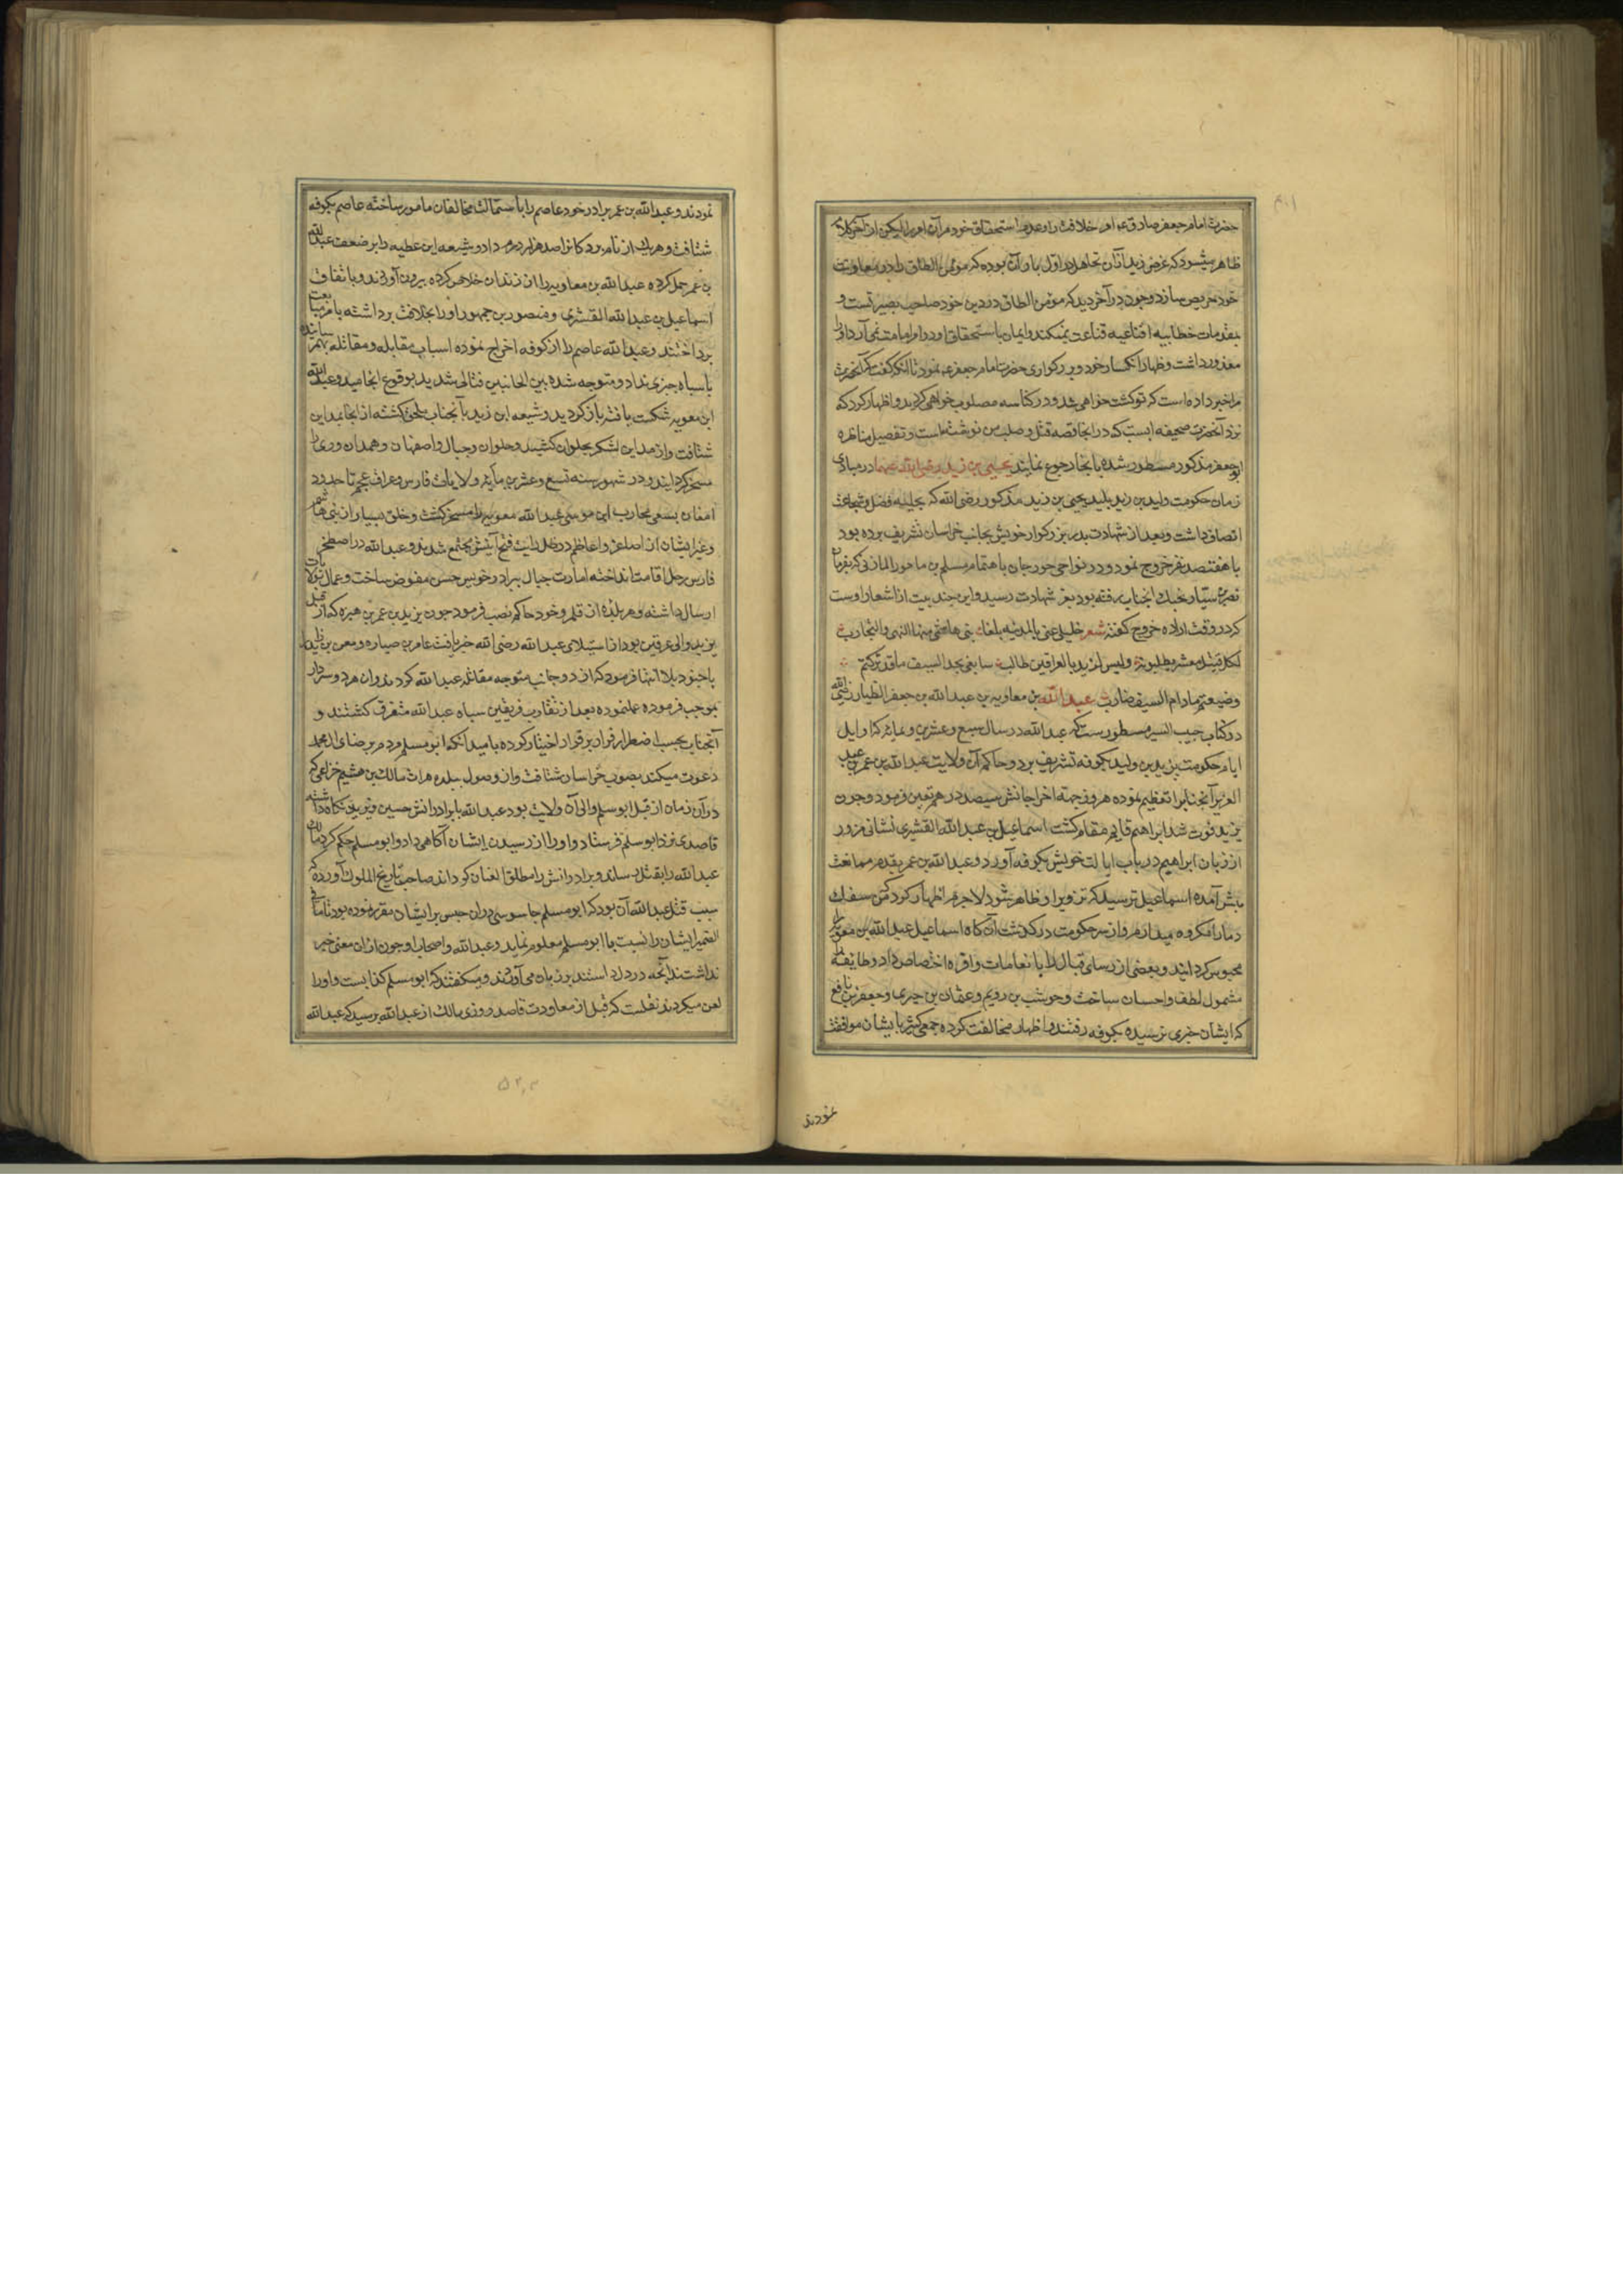 حضرت امام جعفر صادق ع امر خلافت را و عدم استحقاق خود مر آن امر را لیکن از آخر کلام
ظاهر میشود که غرض زید از آن تجاهل در اول بار آن بوده که مؤمن الطاق را در معاونت
خود حریص سازد و چون در آخر دید که مؤمن الطاق در دین خود صاحب بصیرتست و
بمقدمات خطابیه اقناعیه قناعت نمیکند و ایمان باستحقاق او در امر امامت نمی آرد او را
معذور داشت و اظهار انکسار خود و بزرگواری حضرت امام جعفر ع نمود تا آنکه گفت که آنحضرت
مرا خبر داده است که تو کشته خواهی شد و در کناسه مصلوب خواهی گردید و اظهار کرد که
نزد آنحضرت صحیفه ایست که در آنجا قصه قتل و صلب من نوشته است و تفصیل مناظره
ابو جعفر مذکور مسطور شده بآنجا رجوع نمایند یحیی بن زید رضی الله عنهما در مبادی
زمان حکومت ولید بن یزید پلید یحیی بن زید مذکور رضی الله که بحلیه فضل و شجاعت
اتصاف داشت و بعد از شهادت پدر بزرگوار خویش بجانب خراسان تشریف برده بود
با هفتصد نفر خروج نمود و در نواحی جورجان باهتمام مسلم بن ماحور المازنی که بفرمان
نصر سیار بجنك آنجناب رفته بود بعز شهادت رسید و این چند بیت از اشعار اوست
که در وقت اراده خروج گفته شعر خلیلی عنی بالمدینه بلغا بنی هاشم اهل النهی والتجارب
لکل قتیل معشر یطلبونه ولیس لزید بالعراقین طالب سابغی بحد السیف ماقد ترکتم
وضیعتم مادام للسیف ضارب عبد الله بن معاویه بن عبد الله بن جعفر الطیار رضی الله
در کتاب حبیب السیر مسطورست که عبد الله در سال سبع و عشرین و مایه که اوایل
ایام حکومت یزید بن ولید بکوفه تشریف برد و حاکم آن ولایت عبد الله بن عمر بن عبد
العزیز آنجناب را تعظیم نموده هر روز جهته اخراجاتش سیصد درهم تعین فرمود و چون
یزید فوت شد ابراهیم قایم مقام گشت اسماعیل بن عبد الله القشیری نشانی مزور
از زبان ابراهیم در باب ایالت خویش بکوفه آورد و عبد الله بن عمر بقدم ممانعت
پیش آمده اسماعیل ترسید که تزویر او ظاهر شود لاجرم اظهار کرد که من سفك
دما را مکروه میدارم و از سر حکومت درگذشت آنگاه اسماعیل عبد الله بن معویه را
محبوس گردانید و بعضی از رسای قبال را بانعامات وافره اختصاص داد و طایفه را
مشمول لطف و احسان ساخت و حوشب بن رویم و عثمان بن جبری و جعفر بن نافع
که ایشان خبری نرسیده بکوفه رفتند و اظهار مخالفت کرده جمعی کثیر بایشان موافقت
نمودند
نمودند و عبد الله بن عمر برادر خود عاصم را باستمالت مخالفان مامور ساخته عاصم بکوفه
شتافت و هر یك از نام بردگان را صد هزار درم داد و شیعه ابن عطیه را بر ضعف عبد الله
بن عمر حمل کرده عبد الله بن معاویه را از زندان خلاص کرده بیرون آوردند و باتفاق
اسماعیل بن عبد الله القشری و منصور بن جمهور او را بخلافت برداشته بامر بیعت
پرداختند و عبد الله عاصم را از کوفه اخراج نموده اسباب مقابله و مقاتله بهم رسانیده
با سپاه متوجه شده بین الجانبین قتالی شدید بوقوع انجامید و عبد الله
ابن معویه شکست یافته باز گردید و شیعه ابن زید بآنجناب ملحق گشته از آنجا بمداین
شتافت و از مداین لشکر بحلوان کشید و حلوان و جبال و اصفهان و همدان و ری را
مسخر گردانید و در شهور سنه تسع و عشرین مایه ولایات فارس و عراق عجم تا حدود
بسعی محارب ابن موسی عبد الله معویه را مسخر گشت و خلق بسیار از بنی هاشم
و غیر ایشان از اصاغر و اعاظم در ظل رایت فتح آیتش مجتمع شدند و عبد الله در اصطخر
فارس رحل اقامت انداخته امارت جبال ببرادر خویش حسن مفوض ساخت و عمال بولایات
ارسال داشته و هر بلده از قلم و خود حاکم نصب فرمود چون یزید بن عمر بن هبیره که از قبل
یزید والی عرقین بود از استیلای عبد الله رضی الله خبر یافت عامر بن ضباره و معن بن زایده
با جنود بلا انتها فرمود که از دو جانب متوجه مقاتله عبد الله گردند و آن هر دو سردار
بموجب فرموده عملنموده بعد از تقارب فریقین سپاه عبد الله متفرق گشتند و
آنجناب بحسب اضطرار فرار بر قرار اختیار کرده بامید آنکه ابو مسلم مردم بر رضای ال محمد
دعوت میکند بصوب خراسان شتافت و از وصول ببلده هرات مالك بن هشیم خزاعی که
در آن زمان از قبل ابو مسلم والی آن ولایت بود عبد الله با برادرانش حسین و یزید نگاه داشته
قاصدی نزد ابو مسلم فرستاد و او را از رسیدن ایشان آگاهی داد و ابو مسلم حکم کرد مالك
عبد الله را بقتل رساند و برادرانش را مطلق العنان گرداند صاحب تاریخ الملوك آورده که
سبب قتل عبد الله آن بود که ابو مسلم جاسوسی در آن حبس بر ایشان مقرر نموده بود تا ما فی
الضمیر ایشان را نسبت با ابو مسلم معلوم نماید و عبد الله و اصحاب او چون از آن معنی خبر
نداشتند آنچه در دل داشتند بر زبان می آوردند و میگفتند که ابو مسلم کذابست و او را
لعن میکردند نقلست که قبل از معاودت قاصد روزی مالك از عبد الله پرسید که عبد الله